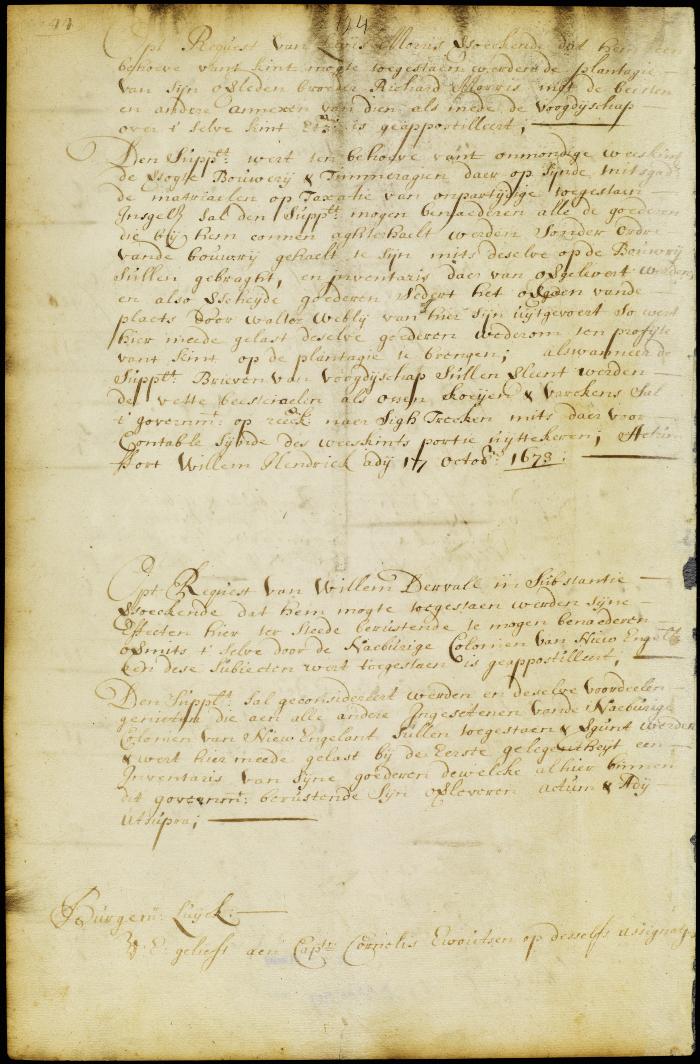 144
Opt Request van Lewis Morris Versoeckende dat hem ten
behoeve vant kint mogte toegestaen werden de plantagie
van sijn overleden broeder Richard Morris met de beesten
en andere annexen van dien als mede de voogdyschap
over 't selve kint Etc: is geappostilleert;
Den Supplt. wert ten behoeve vant onmondige weeskint
de Bouwerij & Timmeragien daer op sijnde mitsgads
de matriaelen op Taxatie van onpartijdige toegestaen
Insgelx sal den Supplt. mogen benaederen alle de goederen
die bij hem connen aghterhaelt werden sonder ordre
vande bouwrij gehaelt te sijn mits deselve op de Bouwrij
sullen gebraght, en inventaris daer van overgelevert werden,
en also verscheyde goederen sedert het overgaen vande
plaets door walter Webbly van hier sijn uijtgevoert so wert
hier meede gelast deselve goederen wederom ten profijte
vant kint op de plantagie te brengen; alswanneer de
Supplt. Brieven van voogdyschap sullen verleent werden
de vette beesteiaelen als ossen koeijen & varckens sal
't governmt. op reeck: naer sigh Trecken mits daer voor
Contable sijnde des weeskints portie uijttekeren; Actum
Fort Willem Hendrick ady 17 octobr: 1673:
Opt Request van Willem Dervall in Substantie
Versoeckende dat hem mogte toegestaen werden sijne
Effecten hier ter steede berustende te mogen benaederen
vermits 't selve door de Naebuirige Colonien van Niew Engelt
aen dese subiecten wert toegestaen is geappostilleert,
Den Supplt. sal geconsidereert werden en deselve voordeelen
genieten die aen alle andere Ingesetenen vande Naebuirige
Colonien van Niew Engelant sullen toegestaen & vergunt werden
& wert hier meede gelast bij de Eerste gelegentheyt een
Inventaris van sijne goederen dewelcke alhier binnen
dit governmt: berustende sijn overleveren actum & Ady
utsupra;
Burgemr. Luyck:
V: E: gelieft aen Capt. Cornelis Ewoutsen op desselfs assignatie